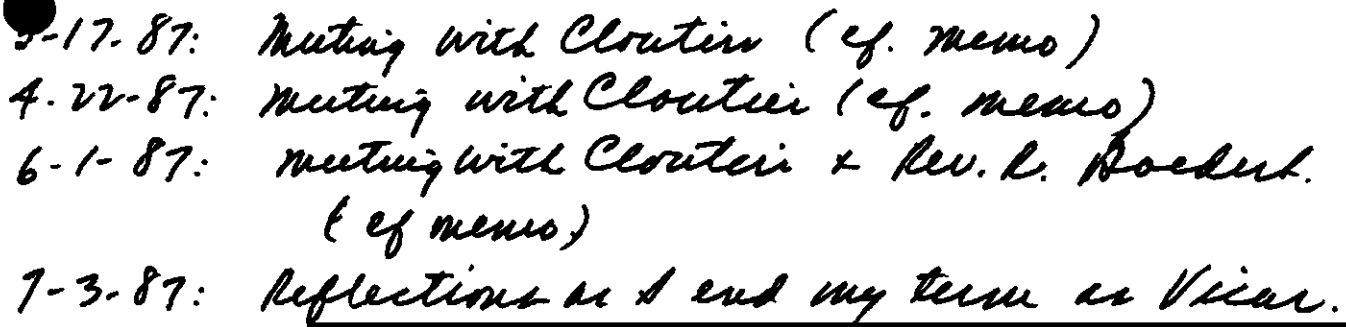 3-17-87: Meeting with Cloutier (cf. memo)
4-22-87: Meeting with Cloutier (cf. memo)
6-1-87: Meeting with Cloutier + Rev. R. Boedert.
(cf memo)
7-3-87: Reflections as I end my term as Vicar.